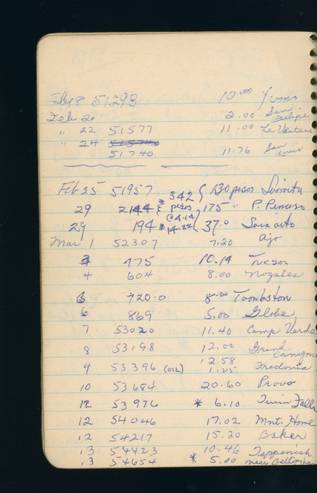 Feb 18 51293 12.00 Yuma
Feb 20 2.00 San Felipe
" 22 51577 11.00 La Ventana
" 24
51740 11.76 San Luis
Feb 25 51957 342 { 130 pesos Sonoita
29 2144 pesos 175 " P. Penasco
29 194 37.0 Sonoita
Mar 1 52307 7.20 Ajo
3 475 10.14 Tucson
4 604 8.00 Nogales
6 720.0 8.00 Tombston
6 869 5.00 Globe
7 53020 11.40 Camp Verde
8 53198 12.00 Grand Canyon
9 53396 (OIL) 12.58 Fredonia
10 53684 20.60 Provo
12 53976 * 6.10 Twin Falls
12 54046 17.02 Mnt. Home
12 54217 15.20 Baker
13 54423 10.46 Toppenish
13 54654 * 5.00 near